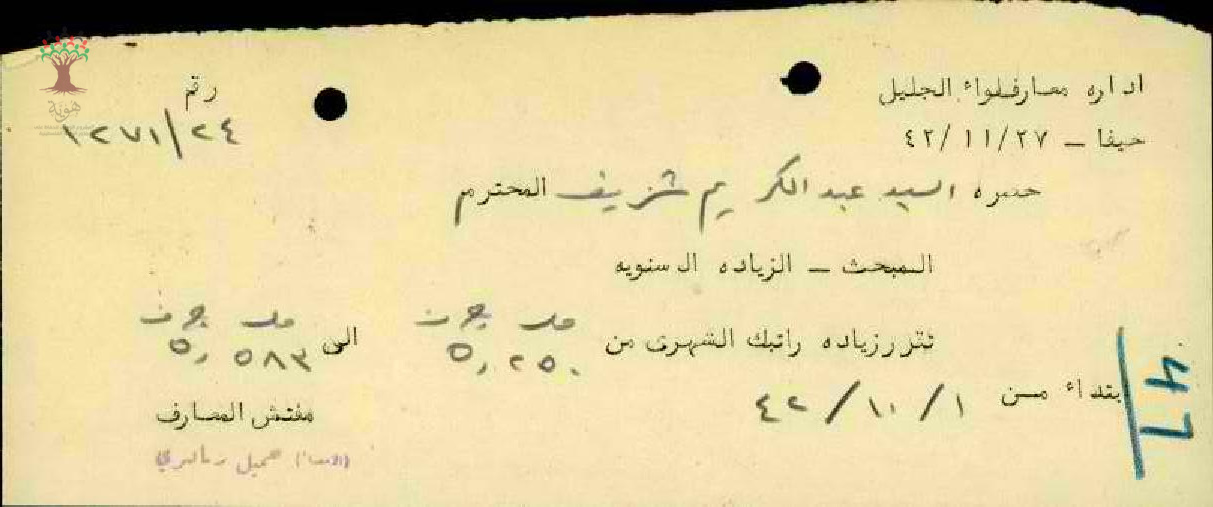 اداره معارف لواء الجليل
رقم
١٢٧١/٢٤
حيفا - ٤٢/١١/٢٧
حضره السيد عبد الكريم شريف المحترم
المبحث - الزياده السنويه
تقرر زياده راتبك الشهرى من ٥,٢٥٠ الى ٥,٥٨٣
ابتداء من ٤٢/١٠/١
مفتش المعارف
(الامضاء) جميل
47
هوية